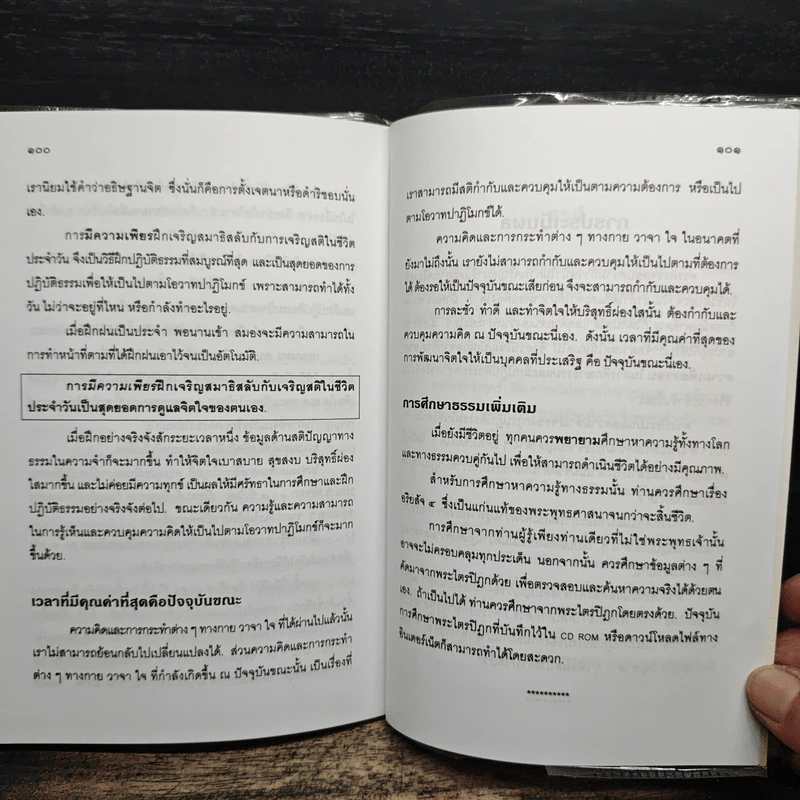 ๑๐๐
เรานิยมใช้คำว่าอธิษฐานจิต ซึ่งนั่นก็คือการตั้งเจตนาหรือดำริชอบนั่น
เอง.
การมีความเพียรฝึกเจริญสมาธิสลับกับการเจริญสติในชีวิต
ประจำวัน จึงเป็นวิธีฝึกปฏิบัติธรรมที่สมบูรณ์ที่สุด และเป็นสุดยอดของการ
ปฏิบัติธรรมเพื่อให้เป็นไปตามโอวาทปาฏิโมกข์ เพราะสามารถทำได้ทั้ง
วัน ไม่ว่าจะอยู่ที่ไหน หรือกำลังทำอะไรอยู่.
เมื่อฝึกฝนเป็นประจำ พอนานเข้า สมองจะมีความสามารถใน
การทำหน้าที่ตามที่ได้ฝึกฝนเอาไว้จนเป็นอัตโนมัติ.
การมีความเพียรฝึกเจริญสมาธิสลับกับเจริญสติในชีวิต
ประจำวันเป็นสุดยอดการดูแลจิตใจของตนเอง.
เมื่อฝึกอย่างจริงจังสักระยะเวลาหนึ่ง ข้อมูลด้านสติปัญญาทาง
ธรรมในความจำก็จะมากขึ้น ทำให้จิตใจเบาสบาย สุขสงบ บริสุทธิ์ผ่อง
ใสมากขึ้น และไม่ค่อยมีความทุกข์ เป็นผลให้มีศรัทธาในการศึกษาและฝึก
ปฏิบัติธรรมอย่างจริงจังต่อไป. ขณะเดียวกัน ความรู้และความสามารถ
ในการรู้เห็นและควบคุมความคิดให้เป็นไปตามโอวาทปาฏิโมกข์ก็จะมาก
ขึ้นด้วย.
เวลาที่มีคุณค่าที่สุดคือปัจจุบันขณะ
ความคิดและการกระทำต่าง ๆ ทางกาย วาจา ใจ ที่ได้ผ่านไปแล้วนั้น
เราไม่สามารถย้อนกลับไปเปลี่ยนแปลงได้. ส่วนความคิดและการกระทำ
ต่าง ๆ ทางกาย วาจา ใจ ที่กำลังเกิดขึ้น ณ ปัจจุบันขณะนั้น เป็นเรื่องที่
๑๐๑
เราสามารถมีสติกำกับและควบคุมให้เป็นตามความต้องการ หรือเป็นไป
ตามโอวาทปาฏิโมกข์ได้.
ความคิดและการกระทำต่าง ๆ ทางกาย วาจา ใจ ในอนาคตที่
ยังมาไม่ถึงนั้น เรายังไม่สามารถกำกับและควบคุมให้เป็นไปตามที่ต้องการ
ได้ ต้องรอให้เป็นปัจจุบันขณะเสียก่อน จึงจะสามารถกำกับและควบคุมได้.
การละชั่ว ทำดี และทำจิตใจให้บริสุทธิ์ผ่องใสนั้น ต้องกำกับและ
ควบคุมความคิด ณ ปัจจุบันขณะนี่เอง. ดังนั้น เวลาที่มีคุณค่าที่สุดของ
การพัฒนาจิตใจให้เป็นบุคคลที่ประเสริฐ คือ ปัจจุบันขณะนี่เอง.
การศึกษาธรรมเพิ่มเติม
เมื่อยังมีชีวิตอยู่ ทุกคนควรพยายามศึกษาหาความรู้ทั้งทางโลก
และทางธรรมควบคู่กันไป เพื่อให้สามารถดำเนินชีวิตได้อย่างมีคุณภาพ.
สำหรับการศึกษาหาความรู้ทางธรรมนั้น ท่านควรศึกษาเรื่อง
อริยสัจ ๔ ซึ่งเป็นแก่นแท้ของพระพุทธศาสนาจนกว่าจะสิ้นชีวิต.
การศึกษาจากท่านผู้รู้เพียงท่านเดียวที่ไม่ใช่พระพุทธเจ้านั้น
อาจจะไม่ครอบคลุมทุกประเด็น นอกจากนั้น ควรศึกษาข้อมูลต่าง ๆ ที่
คัดมาจากพระไตรปิฎกด้วย เพื่อตรวจสอบและค้นหาความจริงได้ด้วยตน
เอง. ถ้าเป็นไปได้ ท่านควรศึกษาจากพระไตรปิฎกโดยตรงด้วย. ปัจจุบัน
การศึกษาพระไตรปิฎกที่บันทึกไว้ใน CD ROM หรือดาวน์โหลดไฟล์ทาง
อินเตอร์เน็ตก็สามารถทำได้โดยสะดวก.
**********